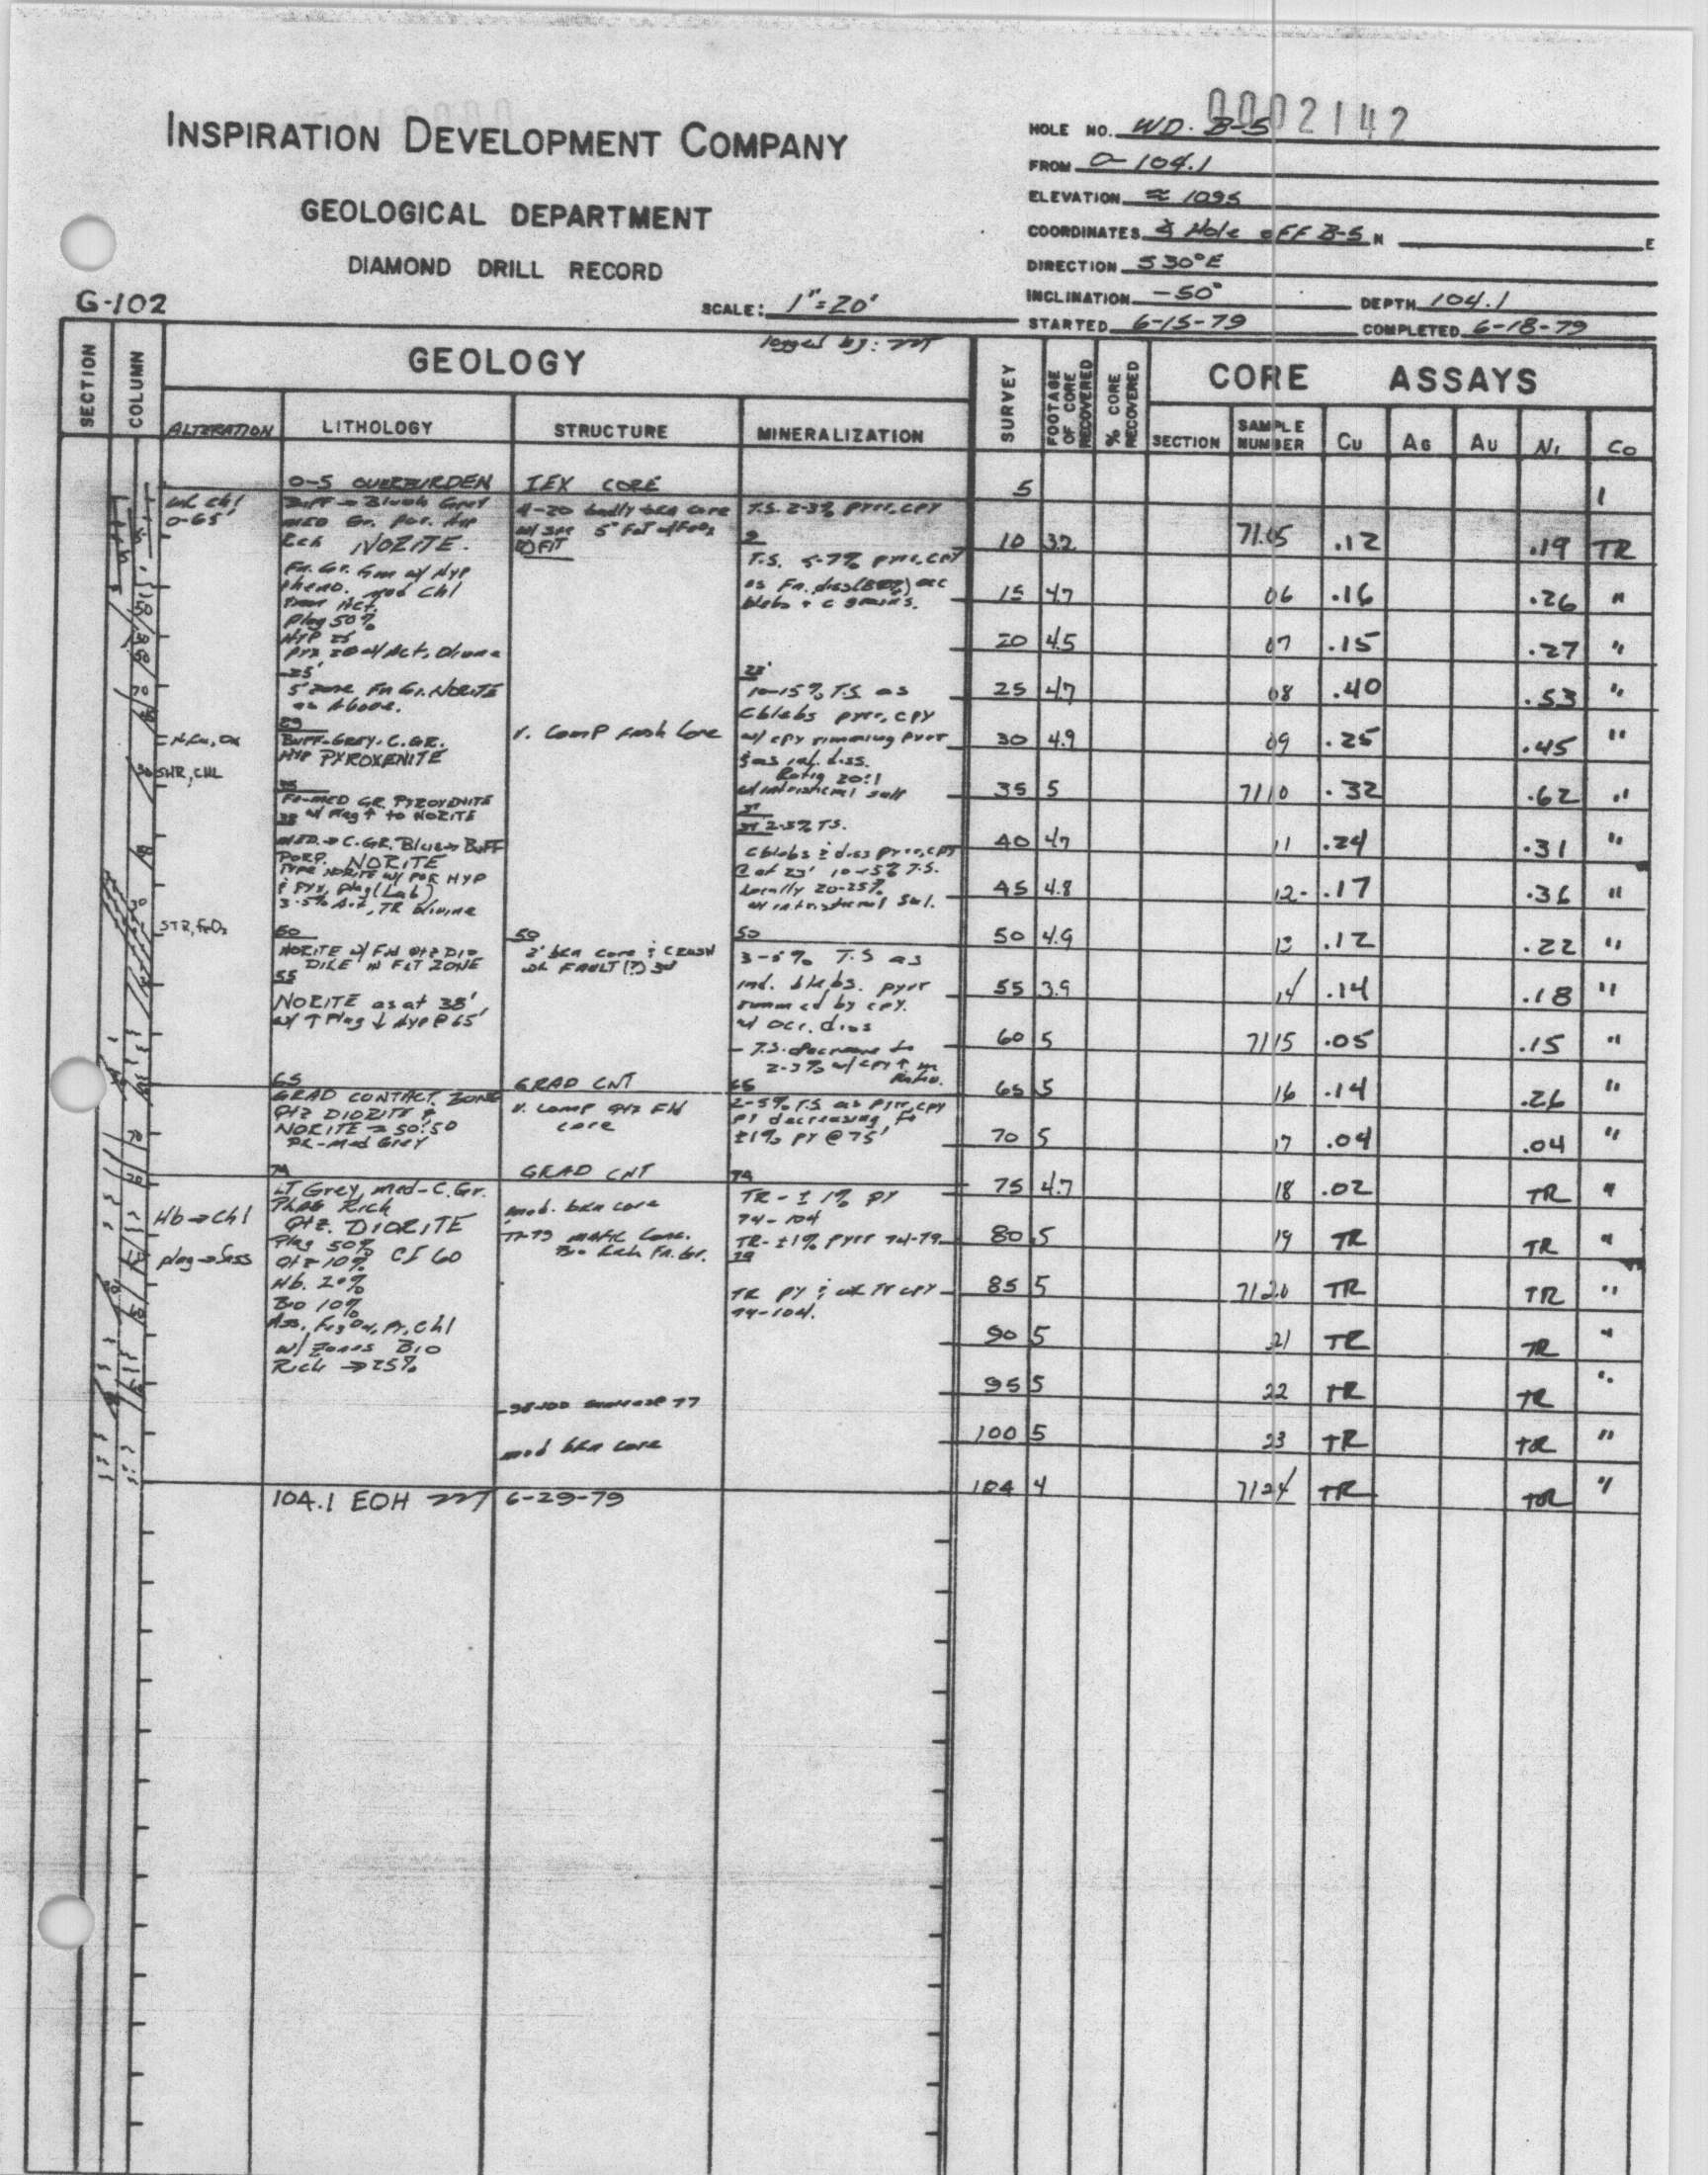 0002142
INSPIRATION DEVELOPMENT COMPANY
GEOLOGICAL DEPARTMENT
DIAMOND DRILL RECORD
G-102
SCALE: 1"=20'
HOLE NO. WD. B-5
FROM 0-104.1
ELEVATION ≈ 1095
COORDINATES & Hole off B-5 N E
DIRECTION S30°E
INCLINATION -50° DEPTH 104.1
STARTED 6-15-79 COMPLETED 6-18-79
logged by:
SECTION COLUMN GEOLOGY SURVEY FOOTAGE OF CORE RECOVERED % CORE RECOVERED CORE ASSAYS
ALTERATION LITHOLOGY STRUCTURE MINERALIZATION SECTION SAMPLE NUMBER Cu AG AU Ni Co
wk chl
0-65'
Hb→Chl
plag→Sass
0-5 OVERBURDEN
Buff→Bluish Grey
med Gr. Por. Hyp
Rch NORITE.
Fn. Gr. Gm w/ Hyp
pheno. mod Chl
Plag 50%
Hyp 25
25'
5' zone Fn Gr. NORITE
as Above.
29
BUFF-GREY-C.GR.
HYP PYROXENITE
35
Fn-MED GR PYROXENITE
38 w/ Plag↑ to NORITE
MED→C.GR. Blue→BUFF
PORP. NORITE
50
NORITE w/ FN QTZ DIO
DIKE IN FLT ZONE
55
NORITE as at 38'
w/ ↑Plag ↓Hyp@65'
65
GRAD CONTACT ZONE
QTZ DIORITE &
NORITE ≈ 50:50
DK-Med Grey
74
LT Grey, med-C.Gr.
Plag Rich
QTZ. DIORITE
Plag 50%
Qtz 10% CI 60
Hb. 20%
Bio 10%
w/ zones Bio
Rich → 25%
104.1 EOH 6-29-79
IEX CORE
4-20 badly bkn core
V. Comp fresh Core
50
2' bkn core & CRUSH
wk FAULT (?)
GRAD CNT
V. comp
core
GRAD CNT
mod. bkn core
mod bkn core
T.S. 2-3% pyrr, cpy
9
T.S. 5-7% pyrr, cpy
blebs + c grains.
23'
10-15% T.S. as
C blebs pyrr, cpy
w/ cpy rimming pyrr
Ratio 20:1
w/ interstitial sulf
37
2-3% T.S.
C blebs & diss pyrr, cpy
Locally 20-25%
w/ interstitial Sul.
50
3-5% T.S as
ind. blebs. pyrr
rimmed by cpy.
w/ occ. diss
- T.S. decrease to
2-3% w/ cpy↑ in
Ratio.
65
2-5% T.S as pyrr, cpy
py decreasing to
±1% py @ 75'
74
TR-±1% py
74-104
TR-±1% pyrr 74-79
79
TR py & wk TR cpy
79-104.
5
10 3.2 7105 .12 .19 TR
15 4.7 06 .16 .26 "
20 4.5 07 .15 .27 "
25 4.7 08 .40 .53 "
30 4.9 09 .25 .45 "
35 5 7110 .32 .62 "
40 4.7 11 .24 .31 "
45 4.8 12 .17 .36 "
50 4.9 13 .12 .22 "
55 3.9 14 .14 .18 "
60 5 7115 .05 .15 "
65 5 16 .14 .26 "
70 5 17 .04 .04 "
75 4.7 18 .02 TR "
80 5 19 TR TR "
85 5 7120 TR TR "
90 5 21 TR TR "
95 5 22 TR TR "
100 5 23 TR TR "
104 4 7124 TR TR "